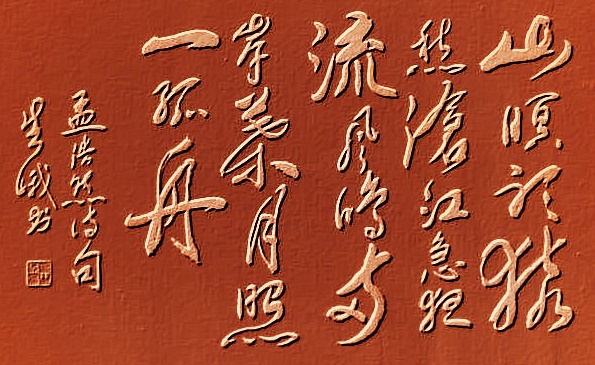 山暝聽猿
愁滄江急夜
流風鳴兩
岸葉月照
一孤舟
孟浩然詩句